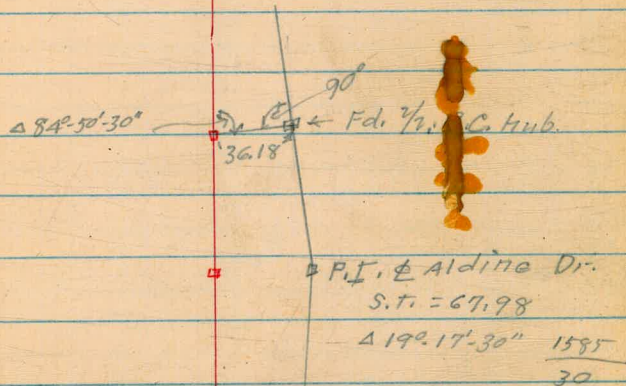 90°
Δ 84°-50'-30" ← Fd. C. Hub.
36.18'
P.I. ₵ Aldine Dr.
S.T. = 67.98
Δ 19°-17'-30" 1585
30